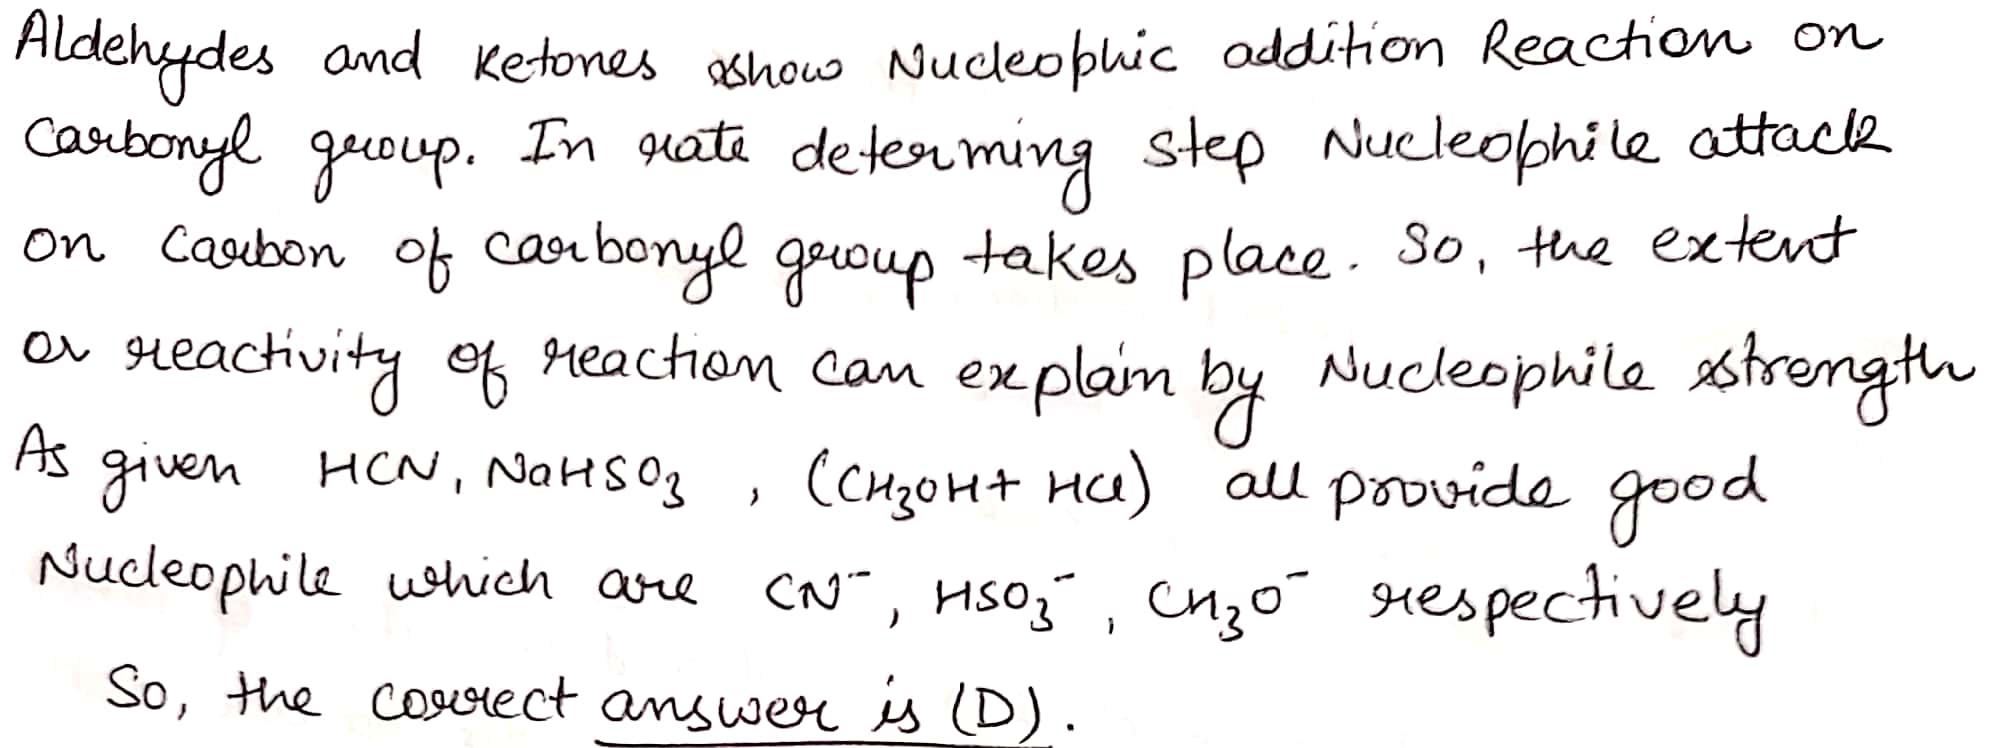 Aldehydes and Ketones show Nucleophic addition Reaction on
Carbonyl group. In rate determing step Nucleophile attack
on Carbon of carbonyl group takes place. So, the extent
or reactivity of reaction can explain by Nucleophile strength
As given HCN, NaHSO₃, (CH₃OH + HCl) all provide good
Nucleophile which are CN⁻, HSO₃⁻, CH₃O⁻ respectively
So, the correct answer is (D).